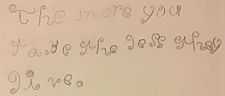 The more you
Take the less they
give.